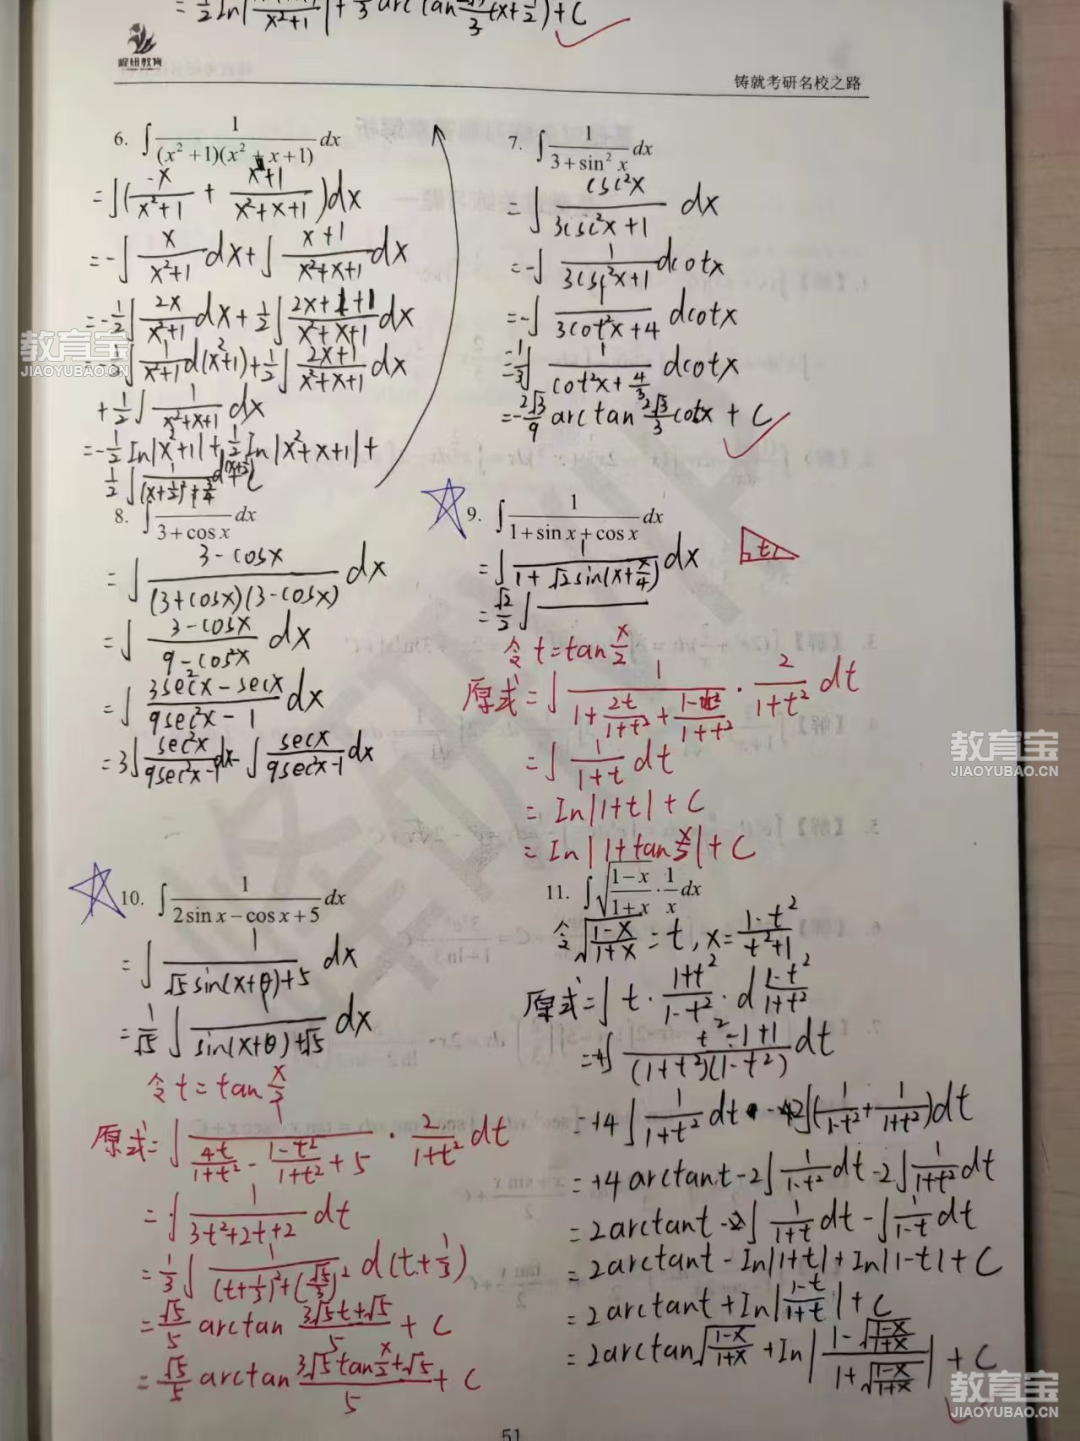 = 1/2 ln| /x²+1 | + √3/3 arctan /3 (x+1/2) + C
崛研教育
铸就考研名校之路
6. ∫ 1/((x²+1)(x²+x+1)) dx
= ∫( -x/(x²+1) + (x+1)/(x²+x+1) )dx
= -∫ x/(x²+1) dx + ∫ (x+1)/(x²+x+1) dx
= -1/2 ∫ 2x/(x²+1) dx + 1/2 ∫ (2x+1+1)/(x²+x+1) dx
= -1/2 ∫ 1/(x²+1) d(x²+1) + 1/2 ∫ (2x+1)/(x²+x+1) dx
+ 1/2 ∫ 1/(x²+x+1) dx
= -1/2 ln|x²+1| + 1/2 ln|x²+x+1| +
1/2 ∫ 1/((x+1/2)²+3/4) d(x+1/2) + C
7. ∫ 1/(3+sin²x) dx
= ∫ csc²x/(3csc²x+1) dx
= -∫ 1/(3csc²x+1) dcotx
= -∫ 1/(3cot²x+4) dcotx
= -1/3 ∫ 1/(cot²x+4/3) dcotx
= -2√3/9 arctan 2√3/3 cotx + C
8. ∫ 1/(3+cos x) dx
= ∫ (3-cosx)/((3+cosx)(3-cosx)) dx
= ∫ (3-cosx)/(9-cos²x) dx
= ∫ (3sec²x-secx)/(9sec²x-1) dx
= 3∫ sec²x/(9sec²x-1) dx - ∫ secx/(9sec²x-1) dx
9. ∫ 1/(1+sin x+cos x) dx
= ∫ 1/(1+√2sin(x+π/4)) dx
= √2/2 ∫
令 t=tan x/2
原式 = ∫ 1/(1+2t/(1+t²)+(1-t²)/(1+t²)) · 2/(1+t²) dt
= ∫ 1/(1+t) dt
= ln|1+t| + C
= ln|1+tan x/2| + C
10. ∫ 1/(2sin x-cos x+5) dx
= ∫ 1/(√5sin(x+θ)+5) dx
= 1/√5 ∫ 1/(sin(x+θ)+√5) dx
令 t=tan x/2
原式 = ∫ 1/(4t/(1+t²) - (1-t²)/(1+t²) + 5) · 2/(1+t²) dt
= ∫ 1/(3t²+2t+2) dt
= 1/3 ∫ 1/((t+1/3)²+(√5/3)²) d(t+1/3)
= √5/5 arctan (3√5t+√5)/5 + C
= √5/5 arctan (3√5tan x/2+√5)/5 + C
11. ∫ √((1-x)/(1+x)) · 1/x dx
令 √((1-x)/(1+x)) = t, x = (1-t²)/(t²+1)
原式 = ∫ t · (1+t²)/(1-t²) · d (1-t²)/(1+t²)
= -4∫ (t²-1+1)/((1+t²)(1-t²)) dt
= +4∫ 1/(1+t²) dt - 2∫(1/(1-t²) + 1/(1+t²))dt
= +4arctant - 2∫ 1/(1-t²) dt - 2∫ 1/(1+t²) dt
= 2arctant - ∫ 1/(1+t) dt - ∫ 1/(1-t) dt
= 2arctant - ln|1+t| + ln|1-t| + C
= 2arctant + ln|(1-t)/(1+t)| + C
= 2arctan√((1-x)/(1+x)) + ln|(1-√((1-x)/(1+x)))/(1+√((1-x)/(1+x)))| + C
51
教育宝
JIAOYUBAO.CN
教育宝
JIAOYUBAO.CN
教育宝
JIAOYUBAO.CN